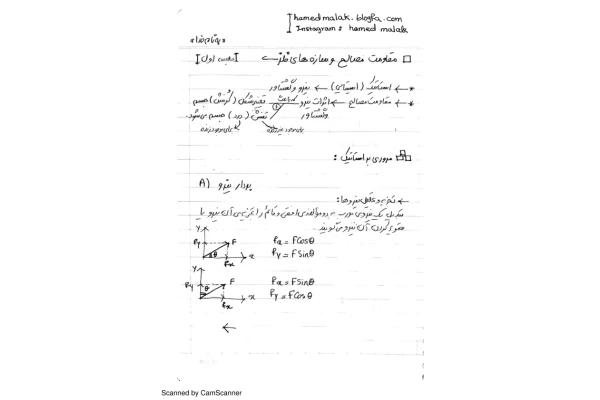 hamedmalak.blogfa.com
Instagram: hamed malak
«به نام خدا»
مقاومت مصالح و سازه های فلزی [جلسه اول]
استاتیک (ایستایی) ← نیرو و گشتاور
مقاومت مصالح ← اثرات نیرو باعث تغییر شکل (کرنش) جسم
و گشتاور تنش (درد) جسم می شود.
مروری بر استاتیک:
A) بردار نیرو
← تجزیه و تحلیل نیروها:
تبدیل یک نیروی مورب به دو مؤلفه ی افقی و قائم را تجزیه ی آن نیرو یا
عمود کردن آن نیرو می گویند
Y
Fy F
θ
Fx x
Fx = F Cosθ
Fy = F Sinθ
Y
Fy F
θ
Fx x
Fx = F Sinθ
Fy = F Cosθ
←
Scanned by CamScanner